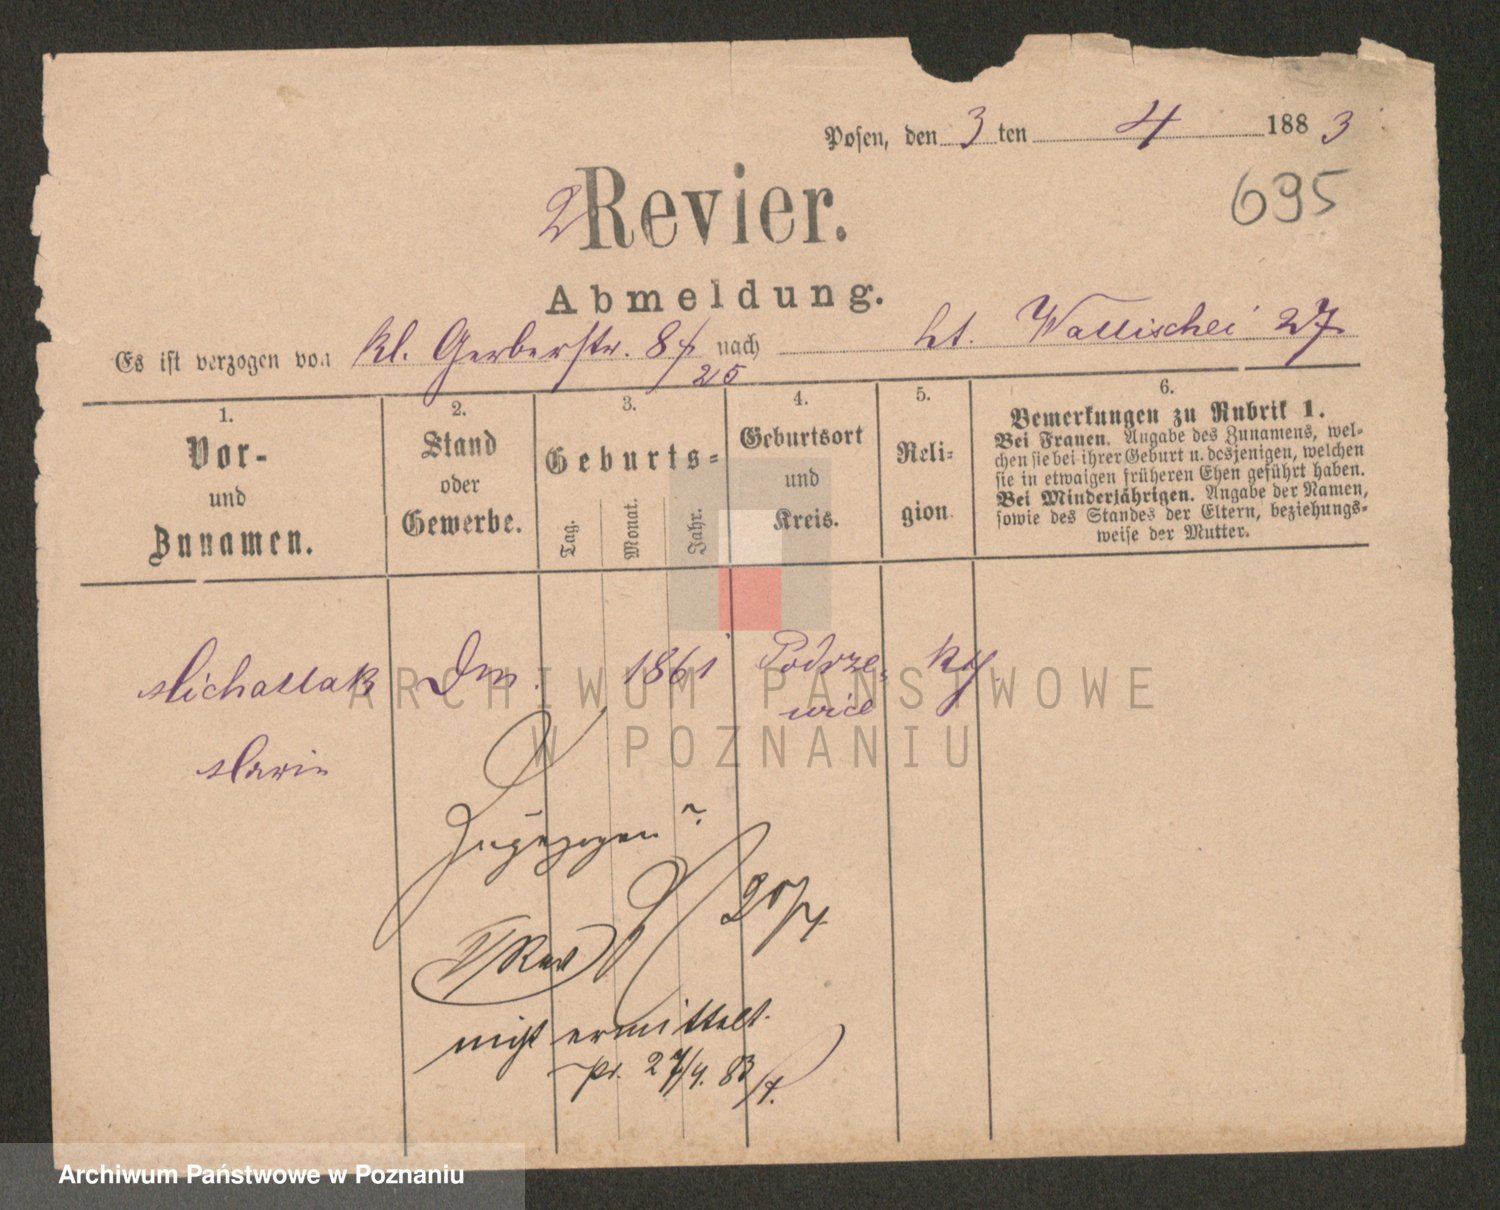 Posen, den 3 ten 4 1883
695
2 Revier.
Abmeldung.
Es ist verzogen von Kl. Gerberstr. 8 nach ht. Wallischei 27
25
1.
Vor-
und
Zunamen.
2.
Stand
oder
Gewerbe.
3.
Geburts-
Tag.
Monat.
Jahr.
4.
Geburtsort
und
Kreis.
5.
Reli-
gion.
6.
Bemerkungen zu Rubrik 1.
Bei Frauen. Angabe des Zunamens, wel-
chen sie bei ihrer Geburt u. desjenigen, welchen
sie in etwaigen früheren Ehen geführt haben.
Bei Minderjährigen. Angabe der Namen,
sowie des Standes der Eltern, beziehungs-
weise der Mutter.
Michallak Dm. 1861 Podrze-
wice
Marie
Zugezogen?
20/4
V/Rev
nicht ermittelt.
pr. 27/4. 83
ARCHIWUM PAŃSTWOWE
W POZNANIU
Archiwum Państwowe w Poznaniu